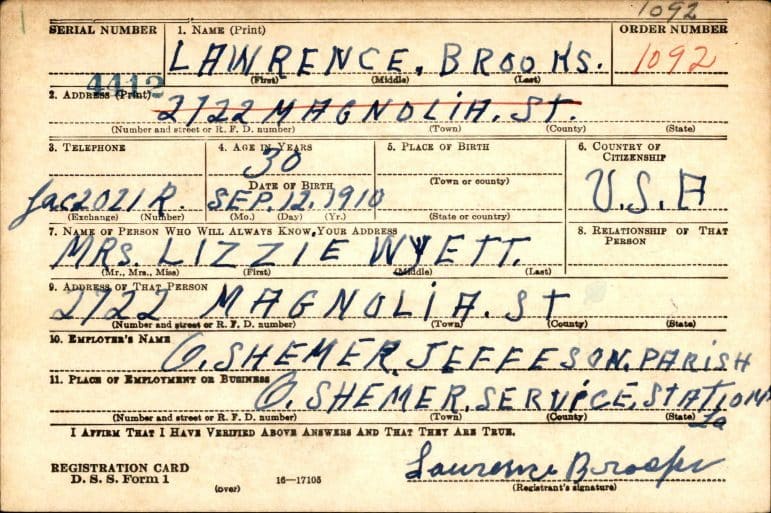 1092
SERIAL NUMBER 1. NAME (Print) ORDER NUMBER
LAWRENCE. BROOKS. 1092
(First) (Middle) (Last)
4412
2. ADDRESS (Print)
2722 MAGNOLIA. ST.
(Number and street or R. F. D. number) (Town) (County) (State)
3. TELEPHONE 4. AGE IN YEARS 5. PLACE OF BIRTH 6. COUNTRY OF
CITIZENSHIP
30
(Town or county)
DATE OF BIRTH
Jac 2021 R. SEP. 12. 1910 U.S.A
(Exchange) (Number) (Mo.) (Day) (Yr.) (State or country)
7. NAME OF PERSON WHO WILL ALWAYS KNOW YOUR ADDRESS 8. RELATIONSHIP OF THAT
PERSON
MRS. LIZZIE WYETT.
(Mr., Mrs., Miss) (First) (Middle) (Last)
9. ADDRESS OF THAT PERSON
2722 MAGNOLIA. ST
(Number and street or R. F. D. number) (Town) (County) (State)
10. EMPLOYER'S NAME
O. SHEMER. JEFFESON. PARISH
11. PLACE OF EMPLOYMENT OR BUSINESS
O. SHEMER. SERVICE. STATION
La
(Number and street or R. F. D. number) (Town) (County) (State)
I AFFIRM THAT I HAVE VERIFIED ABOVE ANSWERS AND THAT THEY ARE TRUE.
REGISTRATION CARD
D. S. S. Form 1 (over) 16—17105
Lawrence Brooks
(Registrant's signature)